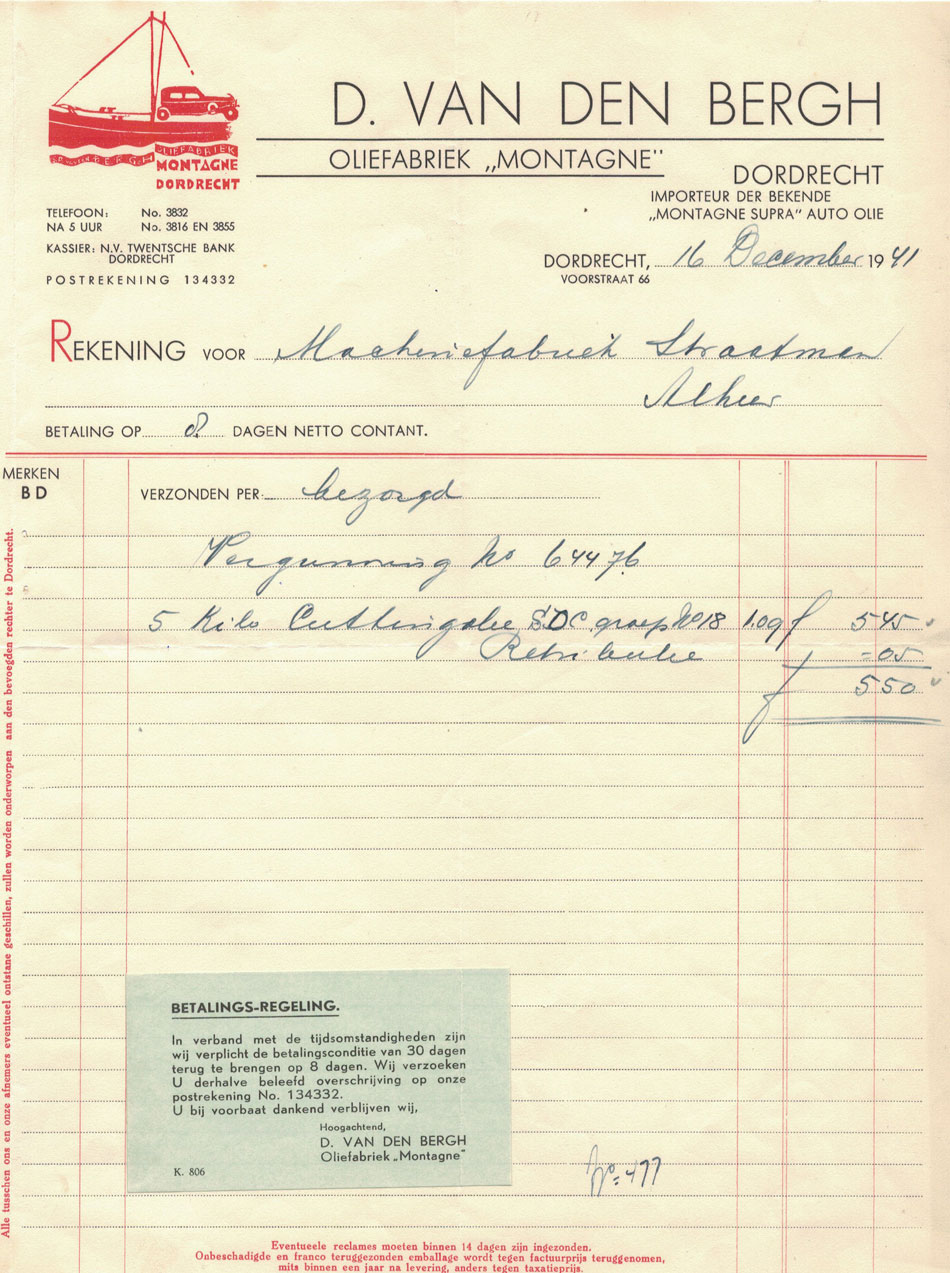 D. VAN DEN BERGH
OLIEFABRIEK „MONTAGNE"
DORDRECHT
IMPORTEUR DER BEKENDE
„MONTAGNE SUPRA" AUTO OLIE
OLIEFABRIEK
MONTAGNE
DORDRECHT
TELEFOON: No. 3832
NA 5 UUR No. 3816 EN 3855
KASSIER: N.V. TWENTSCHE BANK
DORDRECHT
POSTREKENING 134332
DORDRECHT, 16 December 1941
VOORSTRAAT 66
REKENING VOOR Machinefabriek Straatman
Alhier
BETALING OP 8 DAGEN NETTO CONTANT.
MERKEN
B D
VERZONDEN PER: bezorgd
Vergunning No 64476
5 Kilo Cuttingolie S.D.C. groep No 18 1.09 f 545
Retributie =05
f 550
BETALINGS-REGELING.
In verband met de tijdsomstandigheden zijn
wij verplicht de betalingsconditie van 30 dagen
terug te brengen op 8 dagen. Wij verzoeken
U derhalve beleefd overschrijving op onze
postrekening No. 134332.
U bij voorbaat dankend verblijven wij,
Hoogachtend,
D. VAN DEN BERGH
Oliefabriek „Montagne"
K. 806
No = 477
Alle tusschen ons en onze afnemers eventueel ontstane geschillen, zullen worden onderworpen aan den bevoegden rechter te Dordrecht.
Eventueele reclames moeten binnen 14 dagen zijn ingezonden.
Onbeschadigde en franco teruggezonden emballage wordt tegen factuurprijs teruggenomen,
mits binnen een jaar na levering, anders tegen taxatieprijs.